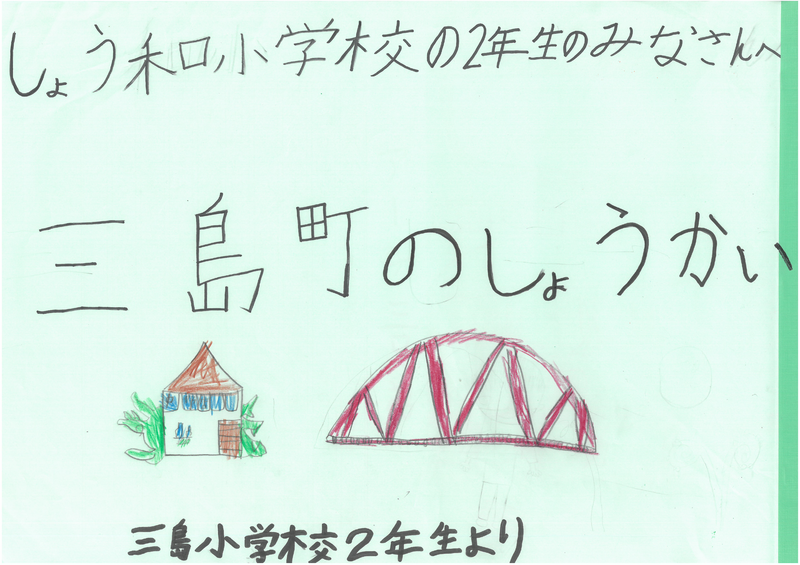 しょう和小学校の2年生のみなさんへ
三島町のしょうかい
三島小学校2年生より